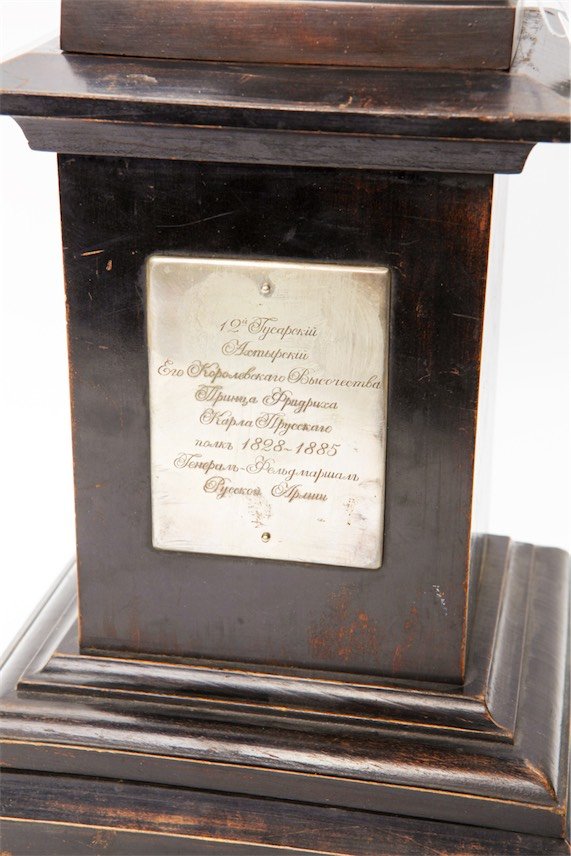 12й Гусарскій
Ахтырскій
Его Королевскаго Высочества
Принца Фридриха
Карла Прусскаго
полкъ 1828-1885
Генералъ-Фельдмаршалъ
Русской Армии